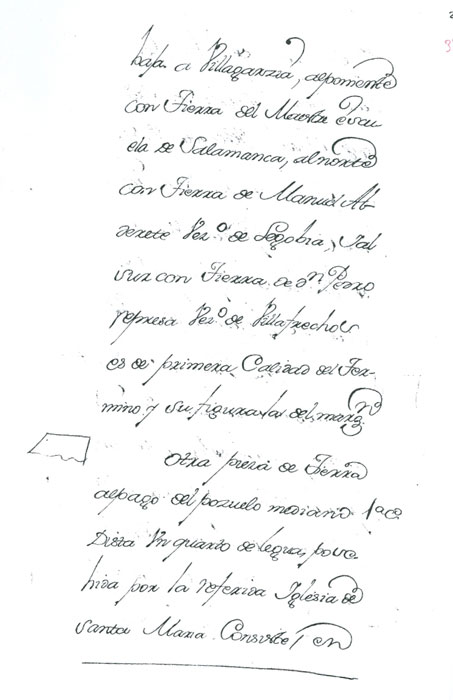 baja a Villagarzia, alponiente
con Tierra del Maestre Escu
ela de Salamanca, al norte
con Tierra de Manuel Al-
derete Vez.º de Segobia, Yal
sur con Tierra de dⁿ Pedro
represa Vez.º de Villafrechos
es de primera Calidad del Ter-
mino y su figura la del marg.ⁿ
Otra pieza de Tierra
alpago del pozuelo mediano 1ª c.
Dista Un quarto de legua, poue
hida por la referida Iglesia de
Santa Maria Consiste en